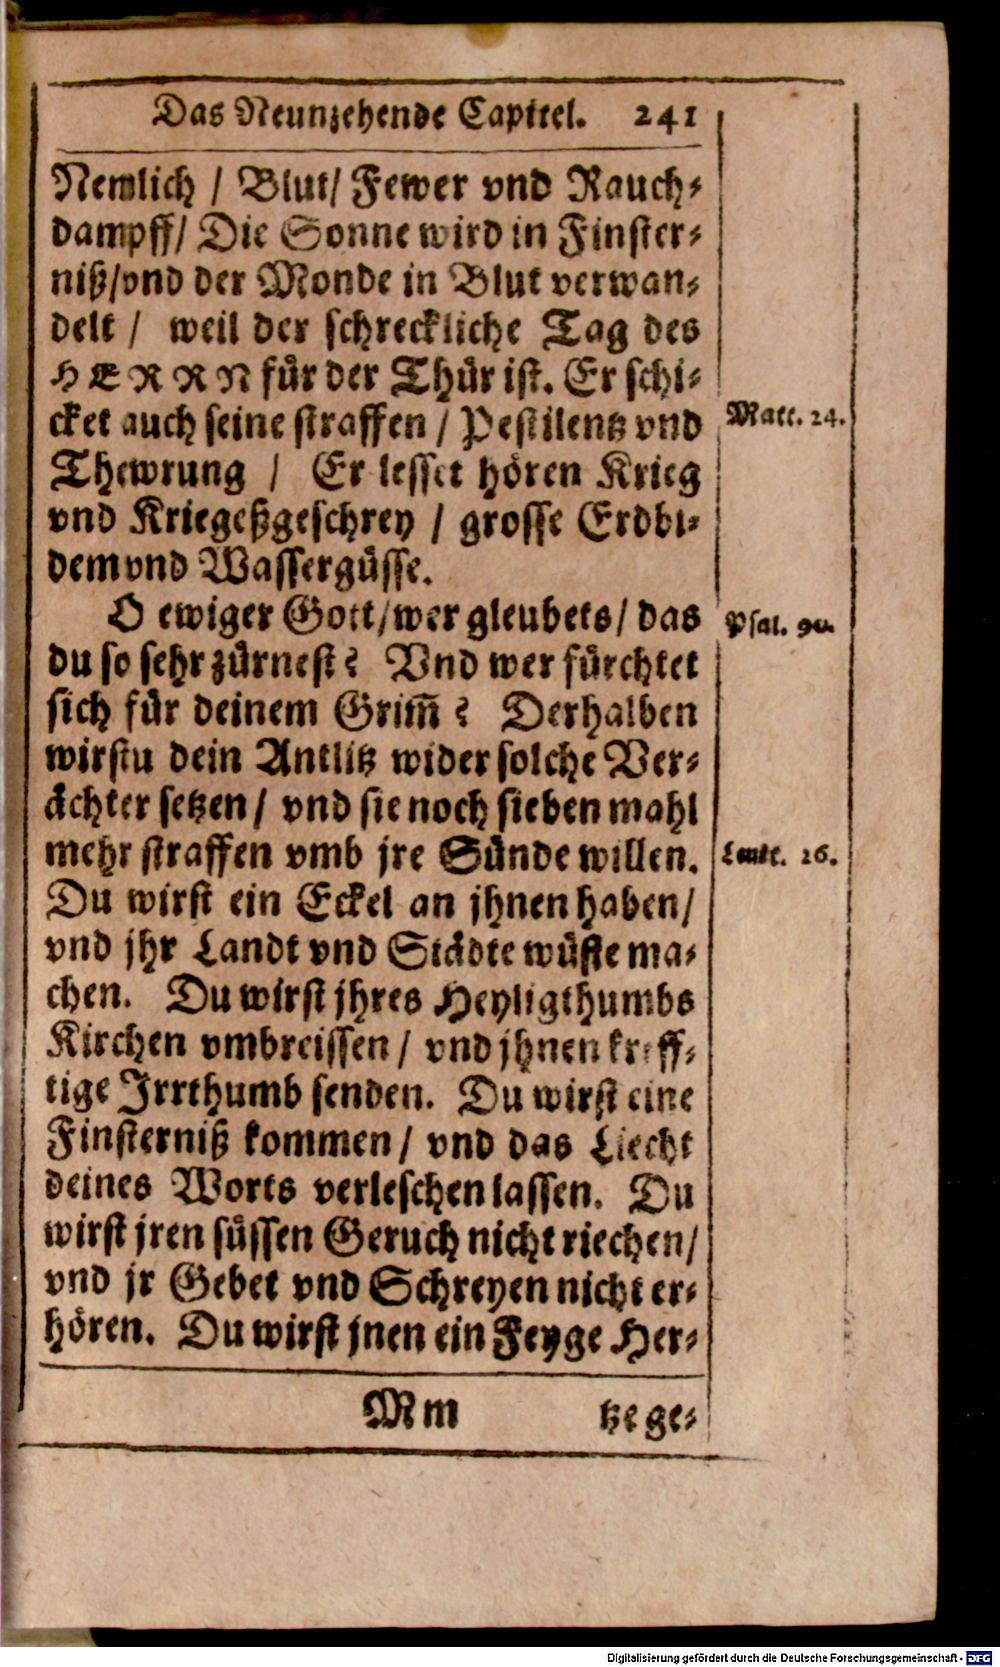 Das Neunzehende Capitel. 241
Nemlich / Blut/ Fewer vnd Rauch⸗
dampff/ Die Sonne wird in Finster⸗
niß/vnd der Monde in Blut verwan⸗
delt / weil der schreckliche Tag des
HERRN für der Thür ist. Er schi⸗
cket auch seine straffen / Pestilentz vnd
Matt. 24.
Thewrung / Er lesset hören Krieg
vnd Kriegeßgeschrey / grosse Erdbi⸗
dem vnd Wassergüsse.
O ewiger Gott/wer gleubets/ das
Psal. 90.
du so sehr zürnest? Vnd wer fürchtet
sich für deinem Grim̃ ? Derhalben
wirstu dein Antlitz wider solche Ver⸗
ächter setzen/ vnd sie noch sieben mahl
mehr straffen vmb jre Sünde willen.
Leuit. 26.
Du wirst ein Eckel an jhnen haben/
vnd jhr Landt vnd Städte wüste ma⸗
chen. Du wirst jhres Heyligthumbs
Kirchen vmbreissen / vnd jhnen kreff⸗
tige Irrthumb senden. Du wirst eine
Finsterniß kommen/ vnd das Liecht
deines Worts verleschen lassen. Du
wirst jren süssen Geruch nicht riechen/
vnd jr Gebet vnd Schreyen nicht er⸗
hören. Du wirst jnen ein Feyge Her⸗
Mm tze ge⸗
Digitalisierung gefördert durch die Deutsche Forschungsgemeinschaft - DFG